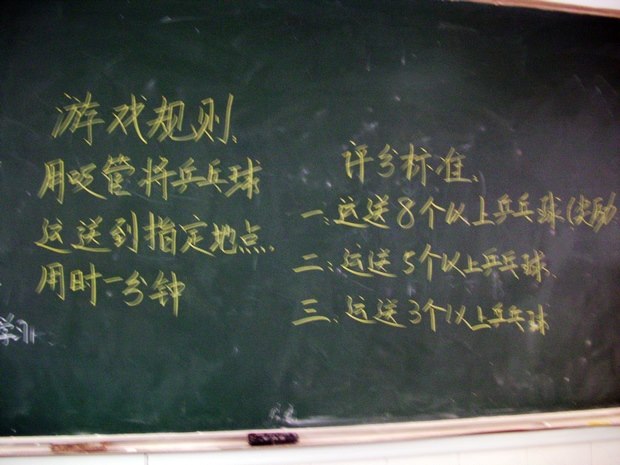 游戏规则
用吸管将乒乓球
运送到指定地点.
用时一分钟
学习
评分标准.
一:运送8个以上乒乓球(奖励
二:运送5个以上乒乓球
三:运送3个以上乒乓球